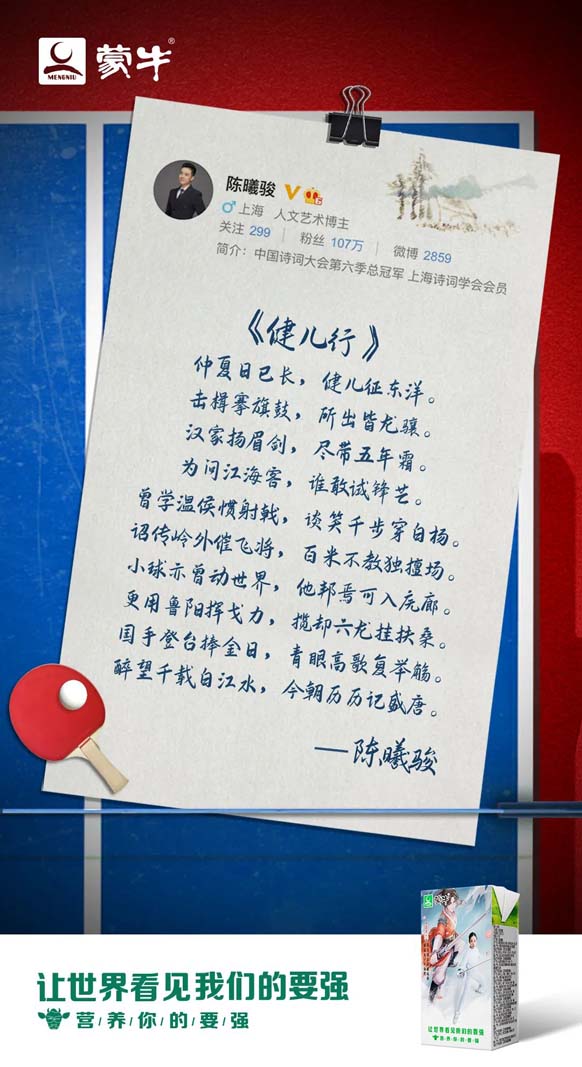 MENGNIU
蒙牛®
陈曦骏
上海 人文艺术博主
关注 299 | 粉丝 107万 | 微博 2859
简介：中国诗词大会第六季总冠军 上海诗词学会会员
《健儿行》
仲夏日已长，健儿征东洋。
击楫搴旗鼓，所出皆龙骧。
汉家扬眉剑，尽带五年霜。
为问江海客，谁敢试锋芒。
曾学温侯惯射戟，谈笑千步穿白杨。
诏传岭外催飞将，百米不教独擅场。
小球亦曾动世界，他邦焉可入庑廊。
更用鲁阳挥戈力，揽却六龙挂扶桑。
国手登台捧金日，青眼高歌复举觞。
醉望千载白江水，今朝历历记盛唐。
——陈曦骏
让世界看见我们的要强
营/养/你/的/要/强
蒙牛
让世界看见我们的要强
营/养/你/的/要/强